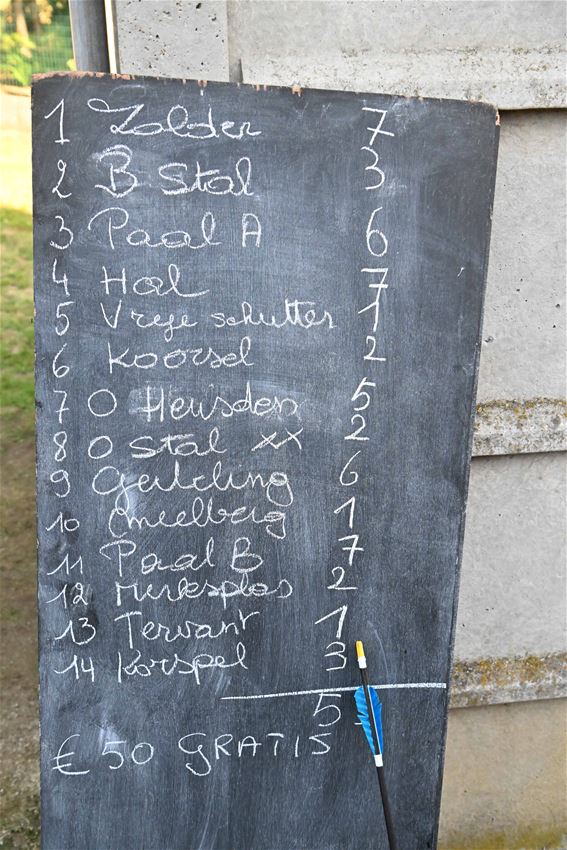 1 Zolder 7
2 B Stal 3
3 Paal A 6
4 Hal 7
5 Vrije schutter 1
6 Koorsel 2
7 O Heusden 5
8 O Stal xx 2
9 Geilding 6
10 1
11 Paal B 7
12 Merksplas 2
13 Tervant 1
14 Korspel 3
5
€ 50 GRATIS